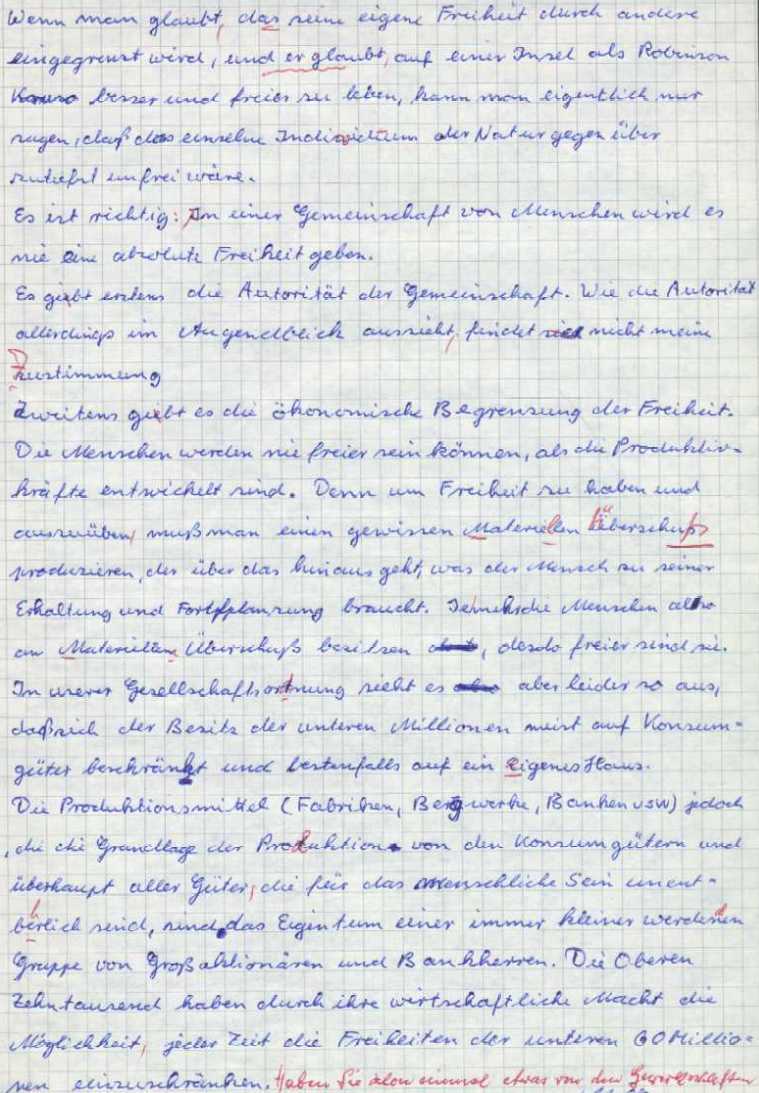 Wenn man glaubt, das seine eigene Freiheit durch andere
eingegrenzt wird, und er glaubt, auf einer Insel als Robinson
Kruso besser und freier zu leben, kann man eigentlich nur
sagen, daß das einzelne Individium der Natur gegen über
zutiefst unfrei wäre.
Es ist richtig: In einer Gemeinschaft von Menschen wird es
nie eine absolute Freiheit geben.
Es giebt erstens die Autorität der Gemeinschaft. Wie die Autorität
allerdings im Augendblick aussieht, findet nicht meine
Zustimmung
Zweitens giebt es die ökonomische Begrenzung der Freiheit.
Die Menschen werden nie freier sein können, als die Produktiv-
kräfte entwickelt sind. Denn um Freiheit zu haben und
auszuüben, muß man einen gewissen Materiellen Überschuß
produzieren, der über das hinaus geht, was der Mensch zu seiner
Erhaltung und Fortpflanzung braucht. Jemehr die Menschen also
an Materiellen Überschuß besitzen, desdo freier sind sie.
In userer Gesellschaftsortnung sieht es aber leider so aus,
daß sich der Besitz der unteren Millionen meist auf Konsum=
güter beschränkt und bestenfalls auf ein Eigenes Haus.
Die Produktionsmittel (Fabriken, Bergwerke, Banken usw) jedoch
, die die Grundlage der Produktion von den Konsumgütern und
überhaupt aller Güter, die für das menschliche Sein unent-
bërlich sind, sind das Eigentum einer immer kleiner werdenen
Gruppe von Großaktionären und Bankherren. Die Oberen
Zehntausend haben durch ihre wirtschaftliche Macht die
Möglichkeit, jeder Zeit die Freiheiten der unteren 60 Millio=
nen einzuschränken. Haben Sie schon einmal etwas von den Gewerkschaften